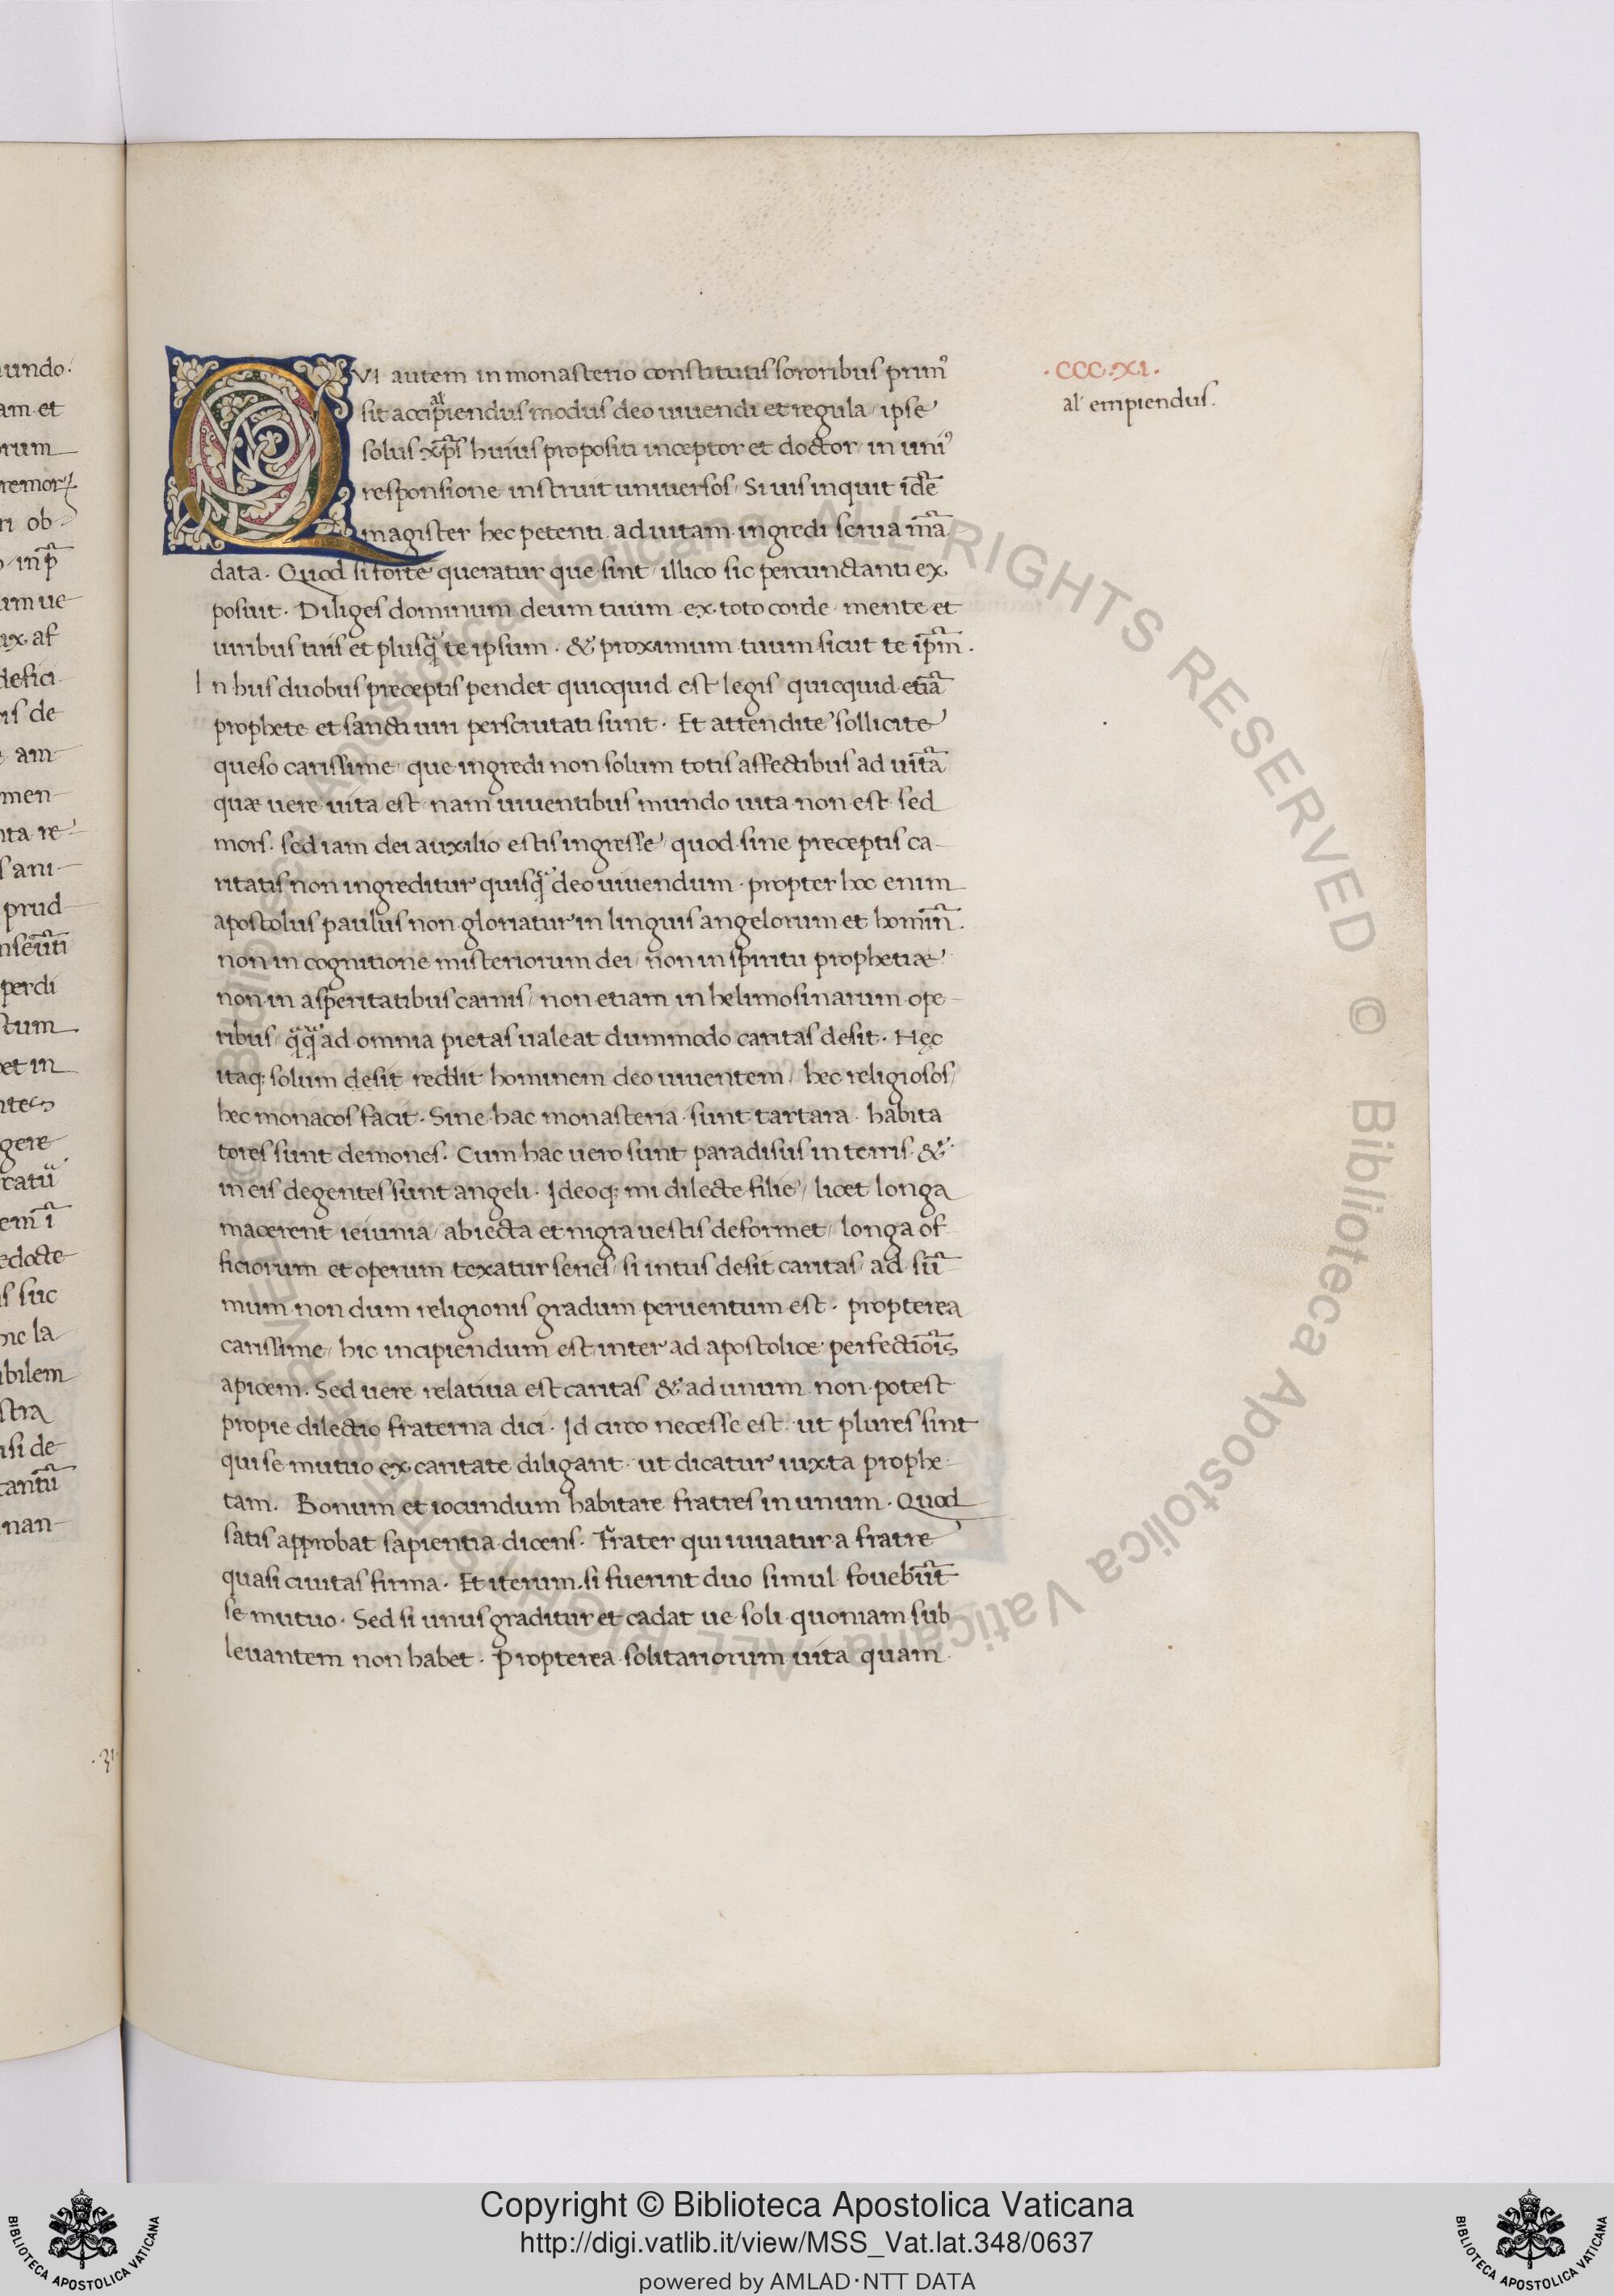 QVI autem in monasterio constitutis sororibus prim᾿
sit accip̄iendus modus deo uiuendi et regula / ipse
solus xp̄s huius propositi inceptor et doctor / in uni᾿
responsione instruit universos / Si uis inquit idē
magister hec petenti ad uitam ingredi serua mā
data · Quod si forte queratur que sint / illico sic percunctanti ex
posuit · Diliges dominum deum tuum ex toto corde mente et
uiribus tuis et plusq̄ te ipsum · & proximum tuum sicut te ip̄m ·
In hus duobus preceptis pendet quicquid est legis quicquid etiā
prophete et sancti uiri perscrutati sunt · Et attendite sollicite
queso carissime / que ingredi non solum totis affectibus ad uitā
quæ uere uita est / nam uiuentibus mundo uita non est sed
mors · sed iam dei auxilio estis ingresse / quod sine preceptis ca-
ritatis non ingreditur quisq̄ deo uiuendum · propter hoc enim
apostolus paulus non gloriatur in linguis angelorum et hominū ·
non in cognitione misteriorum dei / non in spiritu prophetiæ
non in asperitatibus carnis / non etiam in helimosinarum ope-
ribus / q̄q̄ ad omnia pietas ualeat dummodo caritas desit · Hęc
itaq; solum desit reddit hominem deo uiuentem / hec religiosos /
hec monacos facit · Sine hac monasteria sunt tartara · habita
tores sunt demones · Cum hac uero sunt paradisus in terris &
in eis degentes sunt angeli · Ideoq; mi dilecte filie / licet longa
macerent ieiunia / abiecta et nigra uestis deformet / longa of
ficiorum et operum texatur series / si intus desit caritas / ad sū-
mum non dum religionis gradum peruentum est · propterea
carissime / hic incipiendum est inter ad apostolice perfectiōis
apicem · Sed uere relatiua est caritas & ad unum non potest
propie dilectio fraterna dici · Id circo necesse est ut plures sint
qui se mutuo ex caritate diligant · ut dicatur iuxta prophe-
tam · Bonum et iocundum habitare fratres in unum · Quod
satis approbat sapientia dicens · Frater qui iuuatur a fratre
quasi ciuitas firma · Et iterum · si fuerint duo simul fouebūt
se mutuo · Sed si unus graditur et cadat ue soli quoniam sub
leuantem non habet · Propterea solitariorum uita quam
· CCC · XI ·
al' empiendus ·
undo ·
am et
orum
remorꝝ
ri ob
inp̄
um ue
ax af
desici
ris de
am-
men-
nta re-
s ani-
prud-
nseūti
perdi
stum
et in
gere
catū
em ī
edocte
s suc
hic la
ibilem
stra
si de
tantū
nan-
· 31 ·
Biblioteca Apostolica Vaticana ALL RIGHTS RESERVED ©
Copyright © Biblioteca Apostolica Vaticana
http://digi.vatlib.it/view/MSS_Vat.lat.348/0637
powered by AMLAD·NTT DATA
BIBLIOTECA APOSTOLICA VATICANA
BIBLIOTECA APOSTOLICA VATICANA